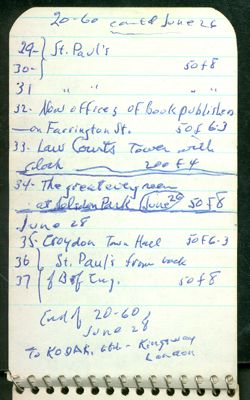 20-60 cont'd June 26
29- } St. Paul's
30- } 50 f 8
31 " " " "
32- New offices of Book publishers
- on Farrington St. 50 f 6-3
33- Law Courts Tower with
clock 200 f 4
34- The great evergreen
at Park (June 28) 50 f 8
June 28
35- Croydon Town Hall 50 f 6-3
36 } St. Paul's from roof
37 } of B of Eng. 50 f 8
End of 20-60,
June 28
To KODAK, Ltd - Kingsway
London